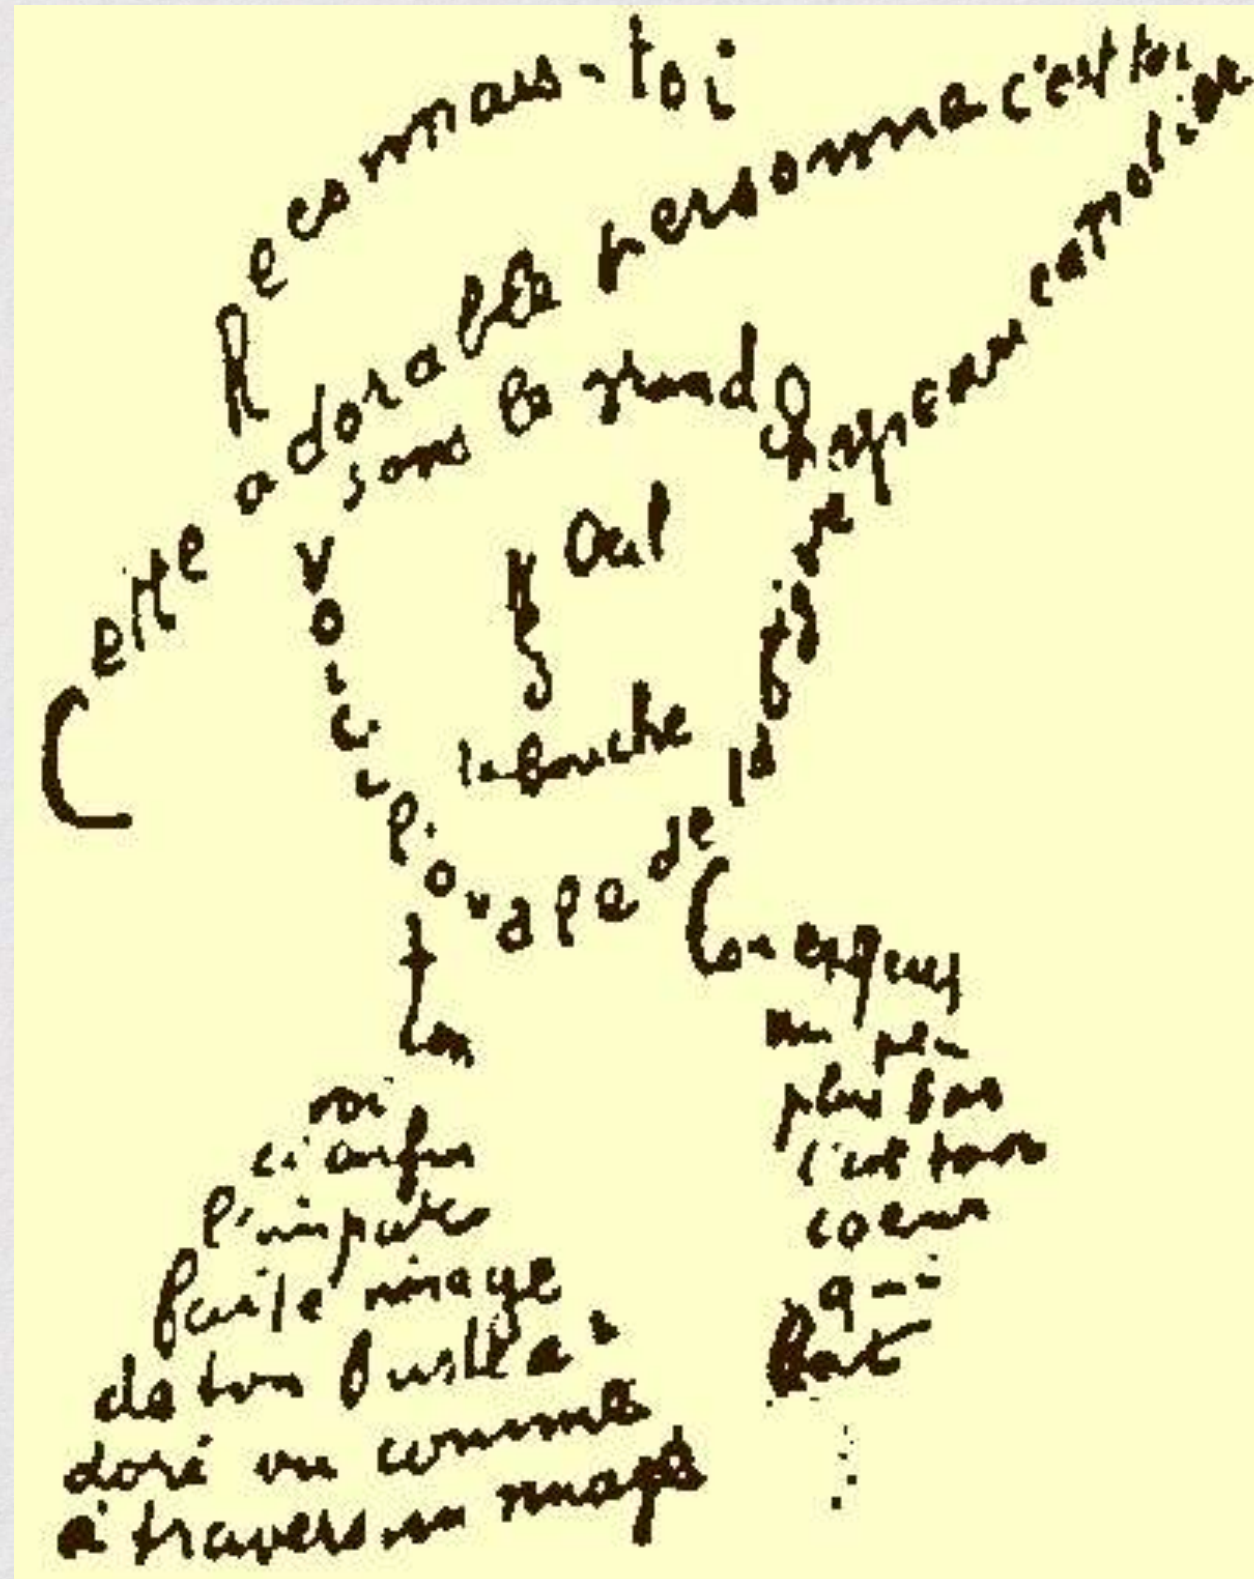 Reconnais-toi
Cette adorable personne c'est toi
sous le grand chapeau canotier
Œil
Nez
la bouche
Voici l'ovale de ta figure
ton
cou exquis
voi
ci enfin
l'impar
faite image
de ton buste a
doré vu comme
à travers un nuage
un peu
plus bas
c'est ton
coeur
qui
bat